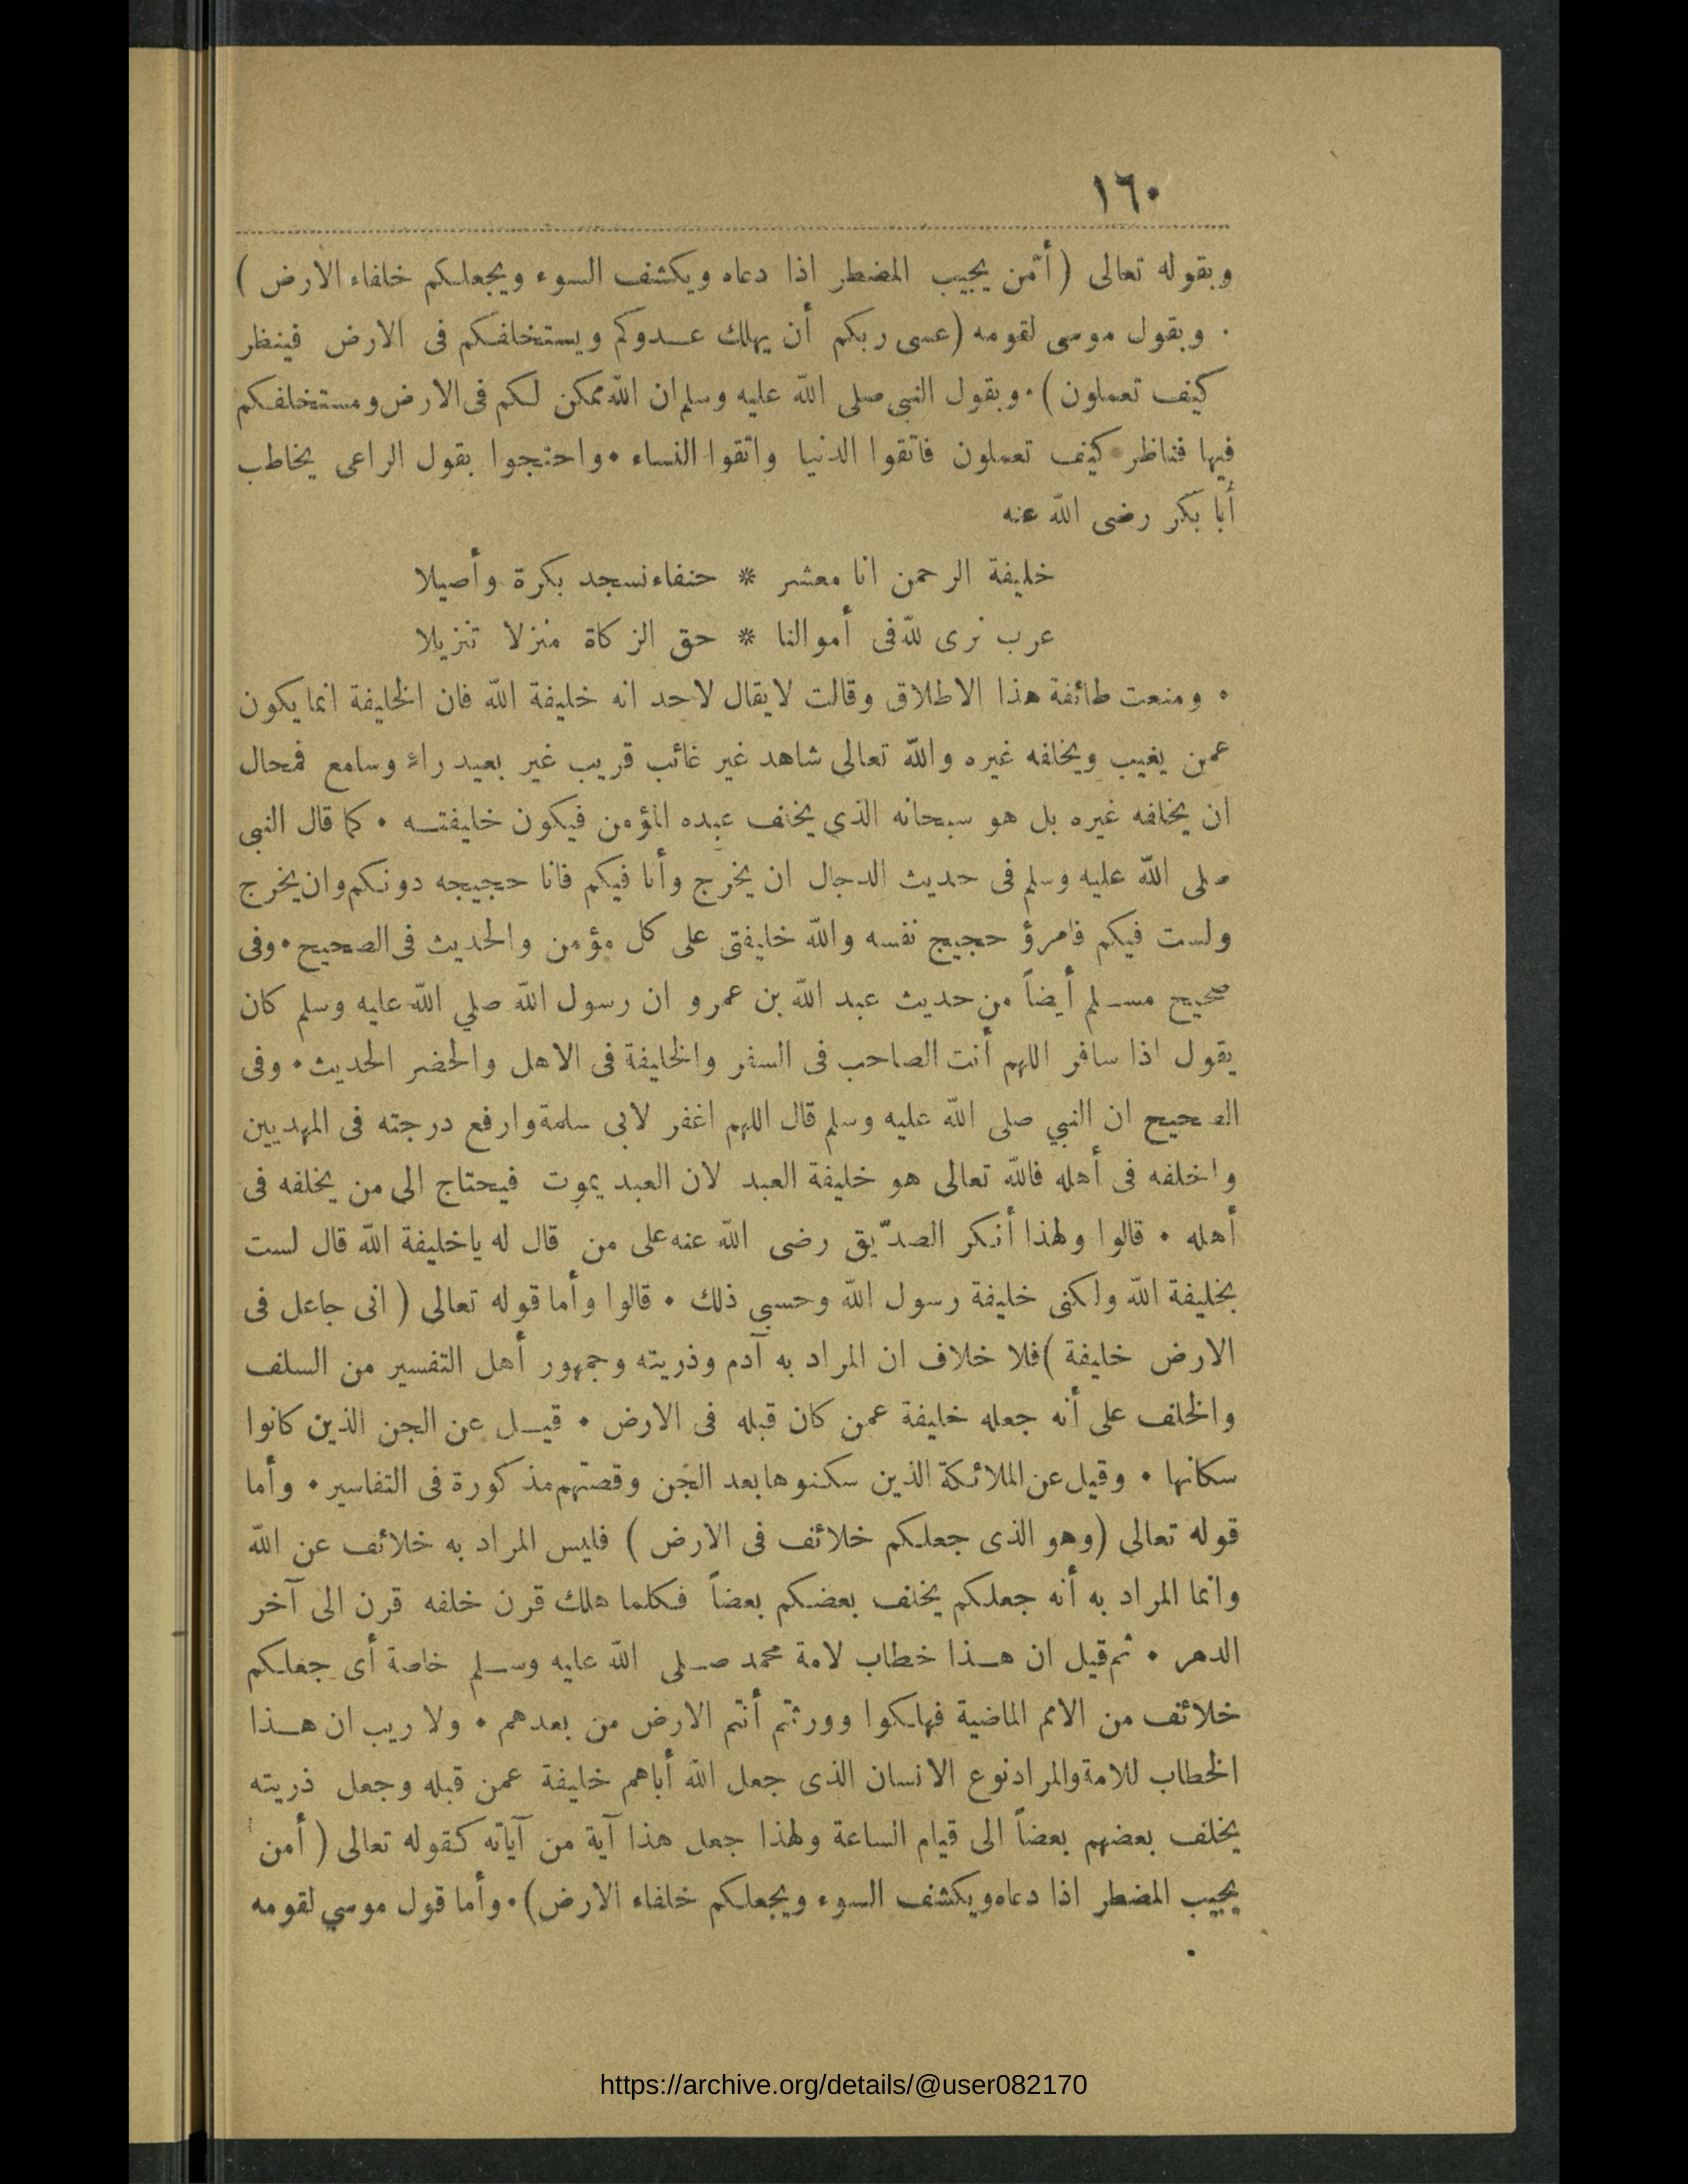 ١٦٠
وبقوله تعالى (أمّن يجيب المضطر اذا دعاه ويكشف السوء ويجعلكم خلفاء الارض )
٠ وبقول موسى لقومه (عسى ربكم أن يهلك عدوكم ويستخلفكم فى الارض فينظر
كيف تعملون)٠وبقول النبى صلى الله عليه وسلم ان الله ممكن لكم فى الارض ومستخلفكم
فيها فناظر كيف تعملون فاتقوا الدنيا واتقوا النساء ٠واحتجوا بقول الراعى يخاطب
أبا بكر رضى الله عنه
خليفة الرحمن انا معشر * حنفاء نسجد بكرة وأصيلا
عرب نرى لله فى أموالنا * حق الزكاة منزلا تنزيلا
٠ ومنعت طائفة هذا الاطلاق وقالت لا يقال لاحد انه خليفة الله فان الخليفة انما يكون
عمن يغيب ويخلفه غيره والله تعالى شاهد غير غائب قريب غير بعيد راء وسامع فمحال
ان يخلفه غيره بل هو سبحانه الذي يخلف عبده المؤمن فيكون خليفته ٠ كما قال النبى
صلى الله عليه وسلم فى حديث الدجال ان يخرج وأنا فيكم فانا حجيجه دونكم وان يخرج
ولست فيكم فامرؤ حجيج نفسه والله خليفتى على كل مؤمن والحديث فى الصحيح٠وفى
صحيح مسلم أيضاً من حديث عبد الله بن عمرو ان رسول الله صلي الله عليه وسلم كان
يقول اذا سافر اللهم أنت الصاحب فى السفر والخليفة فى الاهل والحضر الحديث٠ وفى
الصحيح ان النبي صلى الله عليه وسلم قال اللهم اغفر لابى سلمة وارفع درجته فى المهديين
واخلفه فى أهله فالله تعالى هو خليفة العبد لان العبد يموت فيحتاج الى من يخلفه فى
أهله ٠ قالوا ولهذا أنكر الصدّيق رضى الله عنه على من قال له ياخليفة الله قال لست
بخليفة الله ولكنى خليفة رسول الله وحسبي ذلك ٠ قالوا وأما قوله تعالى ( انى جاعل فى
الارض خليفة )فلا خلاف ان المراد به آدم وذريته وجمهور أهل التفسير من السلف
والخلف على أنه جعله خليفة عمن كان قبله فى الارض ٠ قيل عن الجن الذين كانوا
سكانها ٠ وقيل عن الملائكة الذين سكنوها بعد الجن وقصتهم مذكورة فى التفاسير٠ وأما
قوله تعالى (وهو الذى جعلكم خلائف فى الارض ) فليس المراد به خلائف عن الله
وانما المراد به أنه جعلكم يخلف بعضكم بعضاً فكلما هلك قرن خلفه قرن الى آخر
الدهر ٠ ثم قيل ان هذا خطاب لامة محمد صلى الله عليه وسلم خاصة أى جعلكم
خلائف من الامم الماضية فهلكوا وورثتم أنتم الارض من بعدهم ٠ ولا ريب ان هذا
الخطاب للامة والمراد نوع الانسان الذى جعل الله أباهم خليفة عمن قبله وجعل ذريته
يخلف بعضهم بعضاً الى قيام الساعة ولهذا جعل هذا آية من آياته كقوله تعالى ( أمن
يجيب المضطر اذا دعاه ويكشف السوء ويجعلكم خلفاء الارض)٠وأما قول موسي لقومه
https://archive.org/details/@user082170